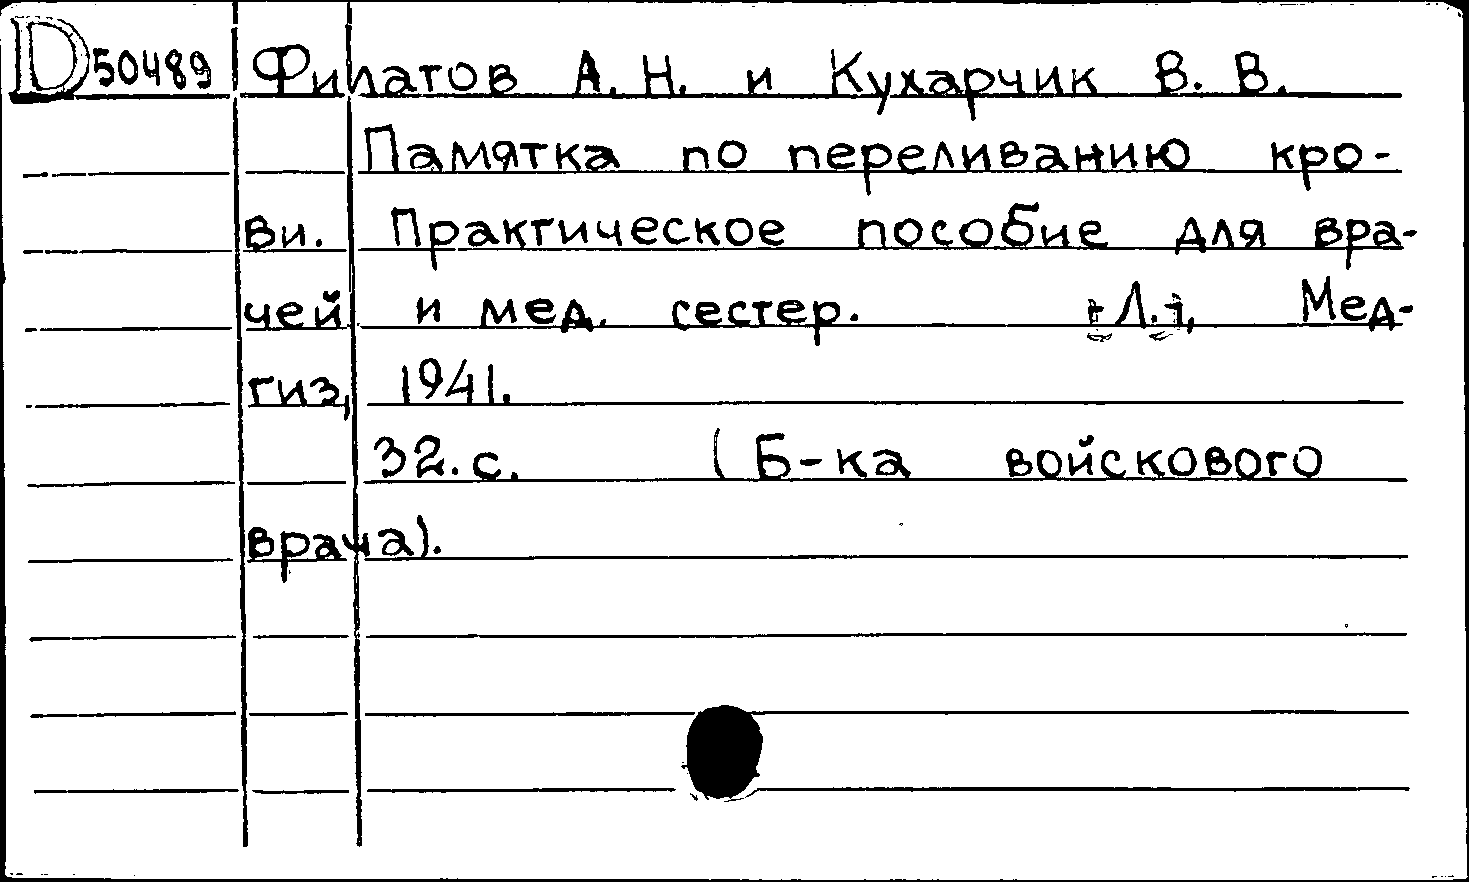 D50489 Филатов А. Н. и Кухарчик В. В.
Памятка по переливанию кро-
ви. Практическое пособие для вра-
чей и мед. сестер. [Л.], Мед-
гиз, 1941.
32.с. (Б-ка войскового
врача).